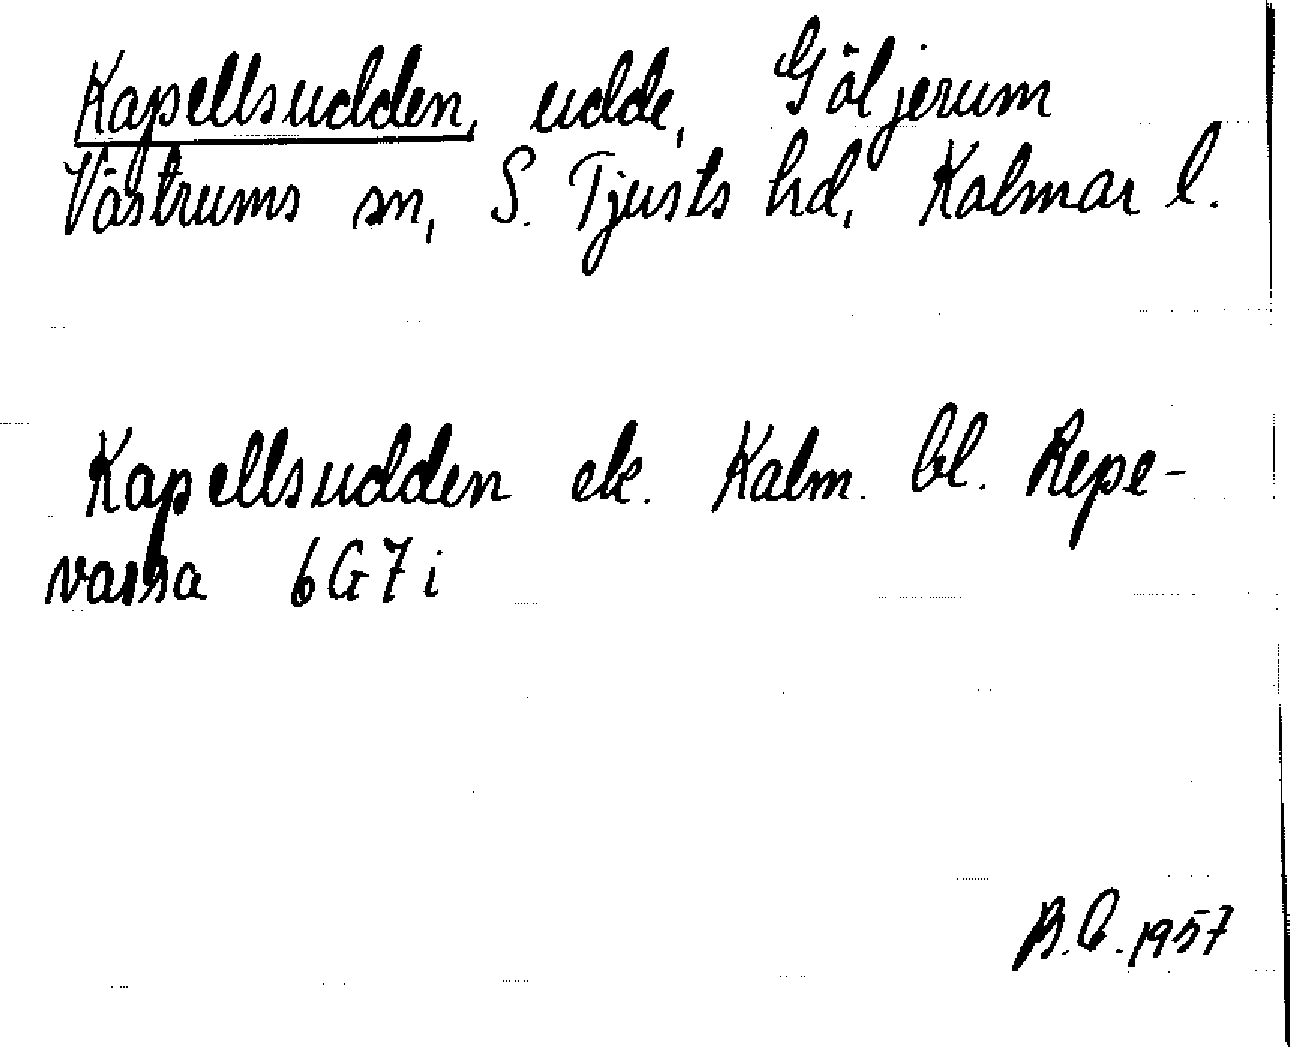 Kapellsudden, udde, Göljerum
Västrums sn, S. Tjusts hd, Kalmar l.
Kapellsudden ek. Kalm. bl. Repe-
vassa 6G7i
B.E. 1957